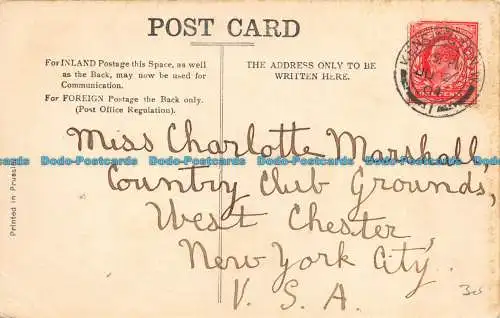 POST CARD
For INLAND Postage this Space, as well
as the Back, may now be used for
Communication.
For FOREIGN Postage the Back only.
(Post Office Regulation).
THE ADDRESS ONLY TO BE
WRITTEN HERE.
Miss Charlotte Marshall,
Country Club Grounds,
West Chester,
New York City.
U. S. A.
Printed in Prussia
Dodo-Postcards Dodo-Postcards Dodo-Postcards Dodo-Postcards